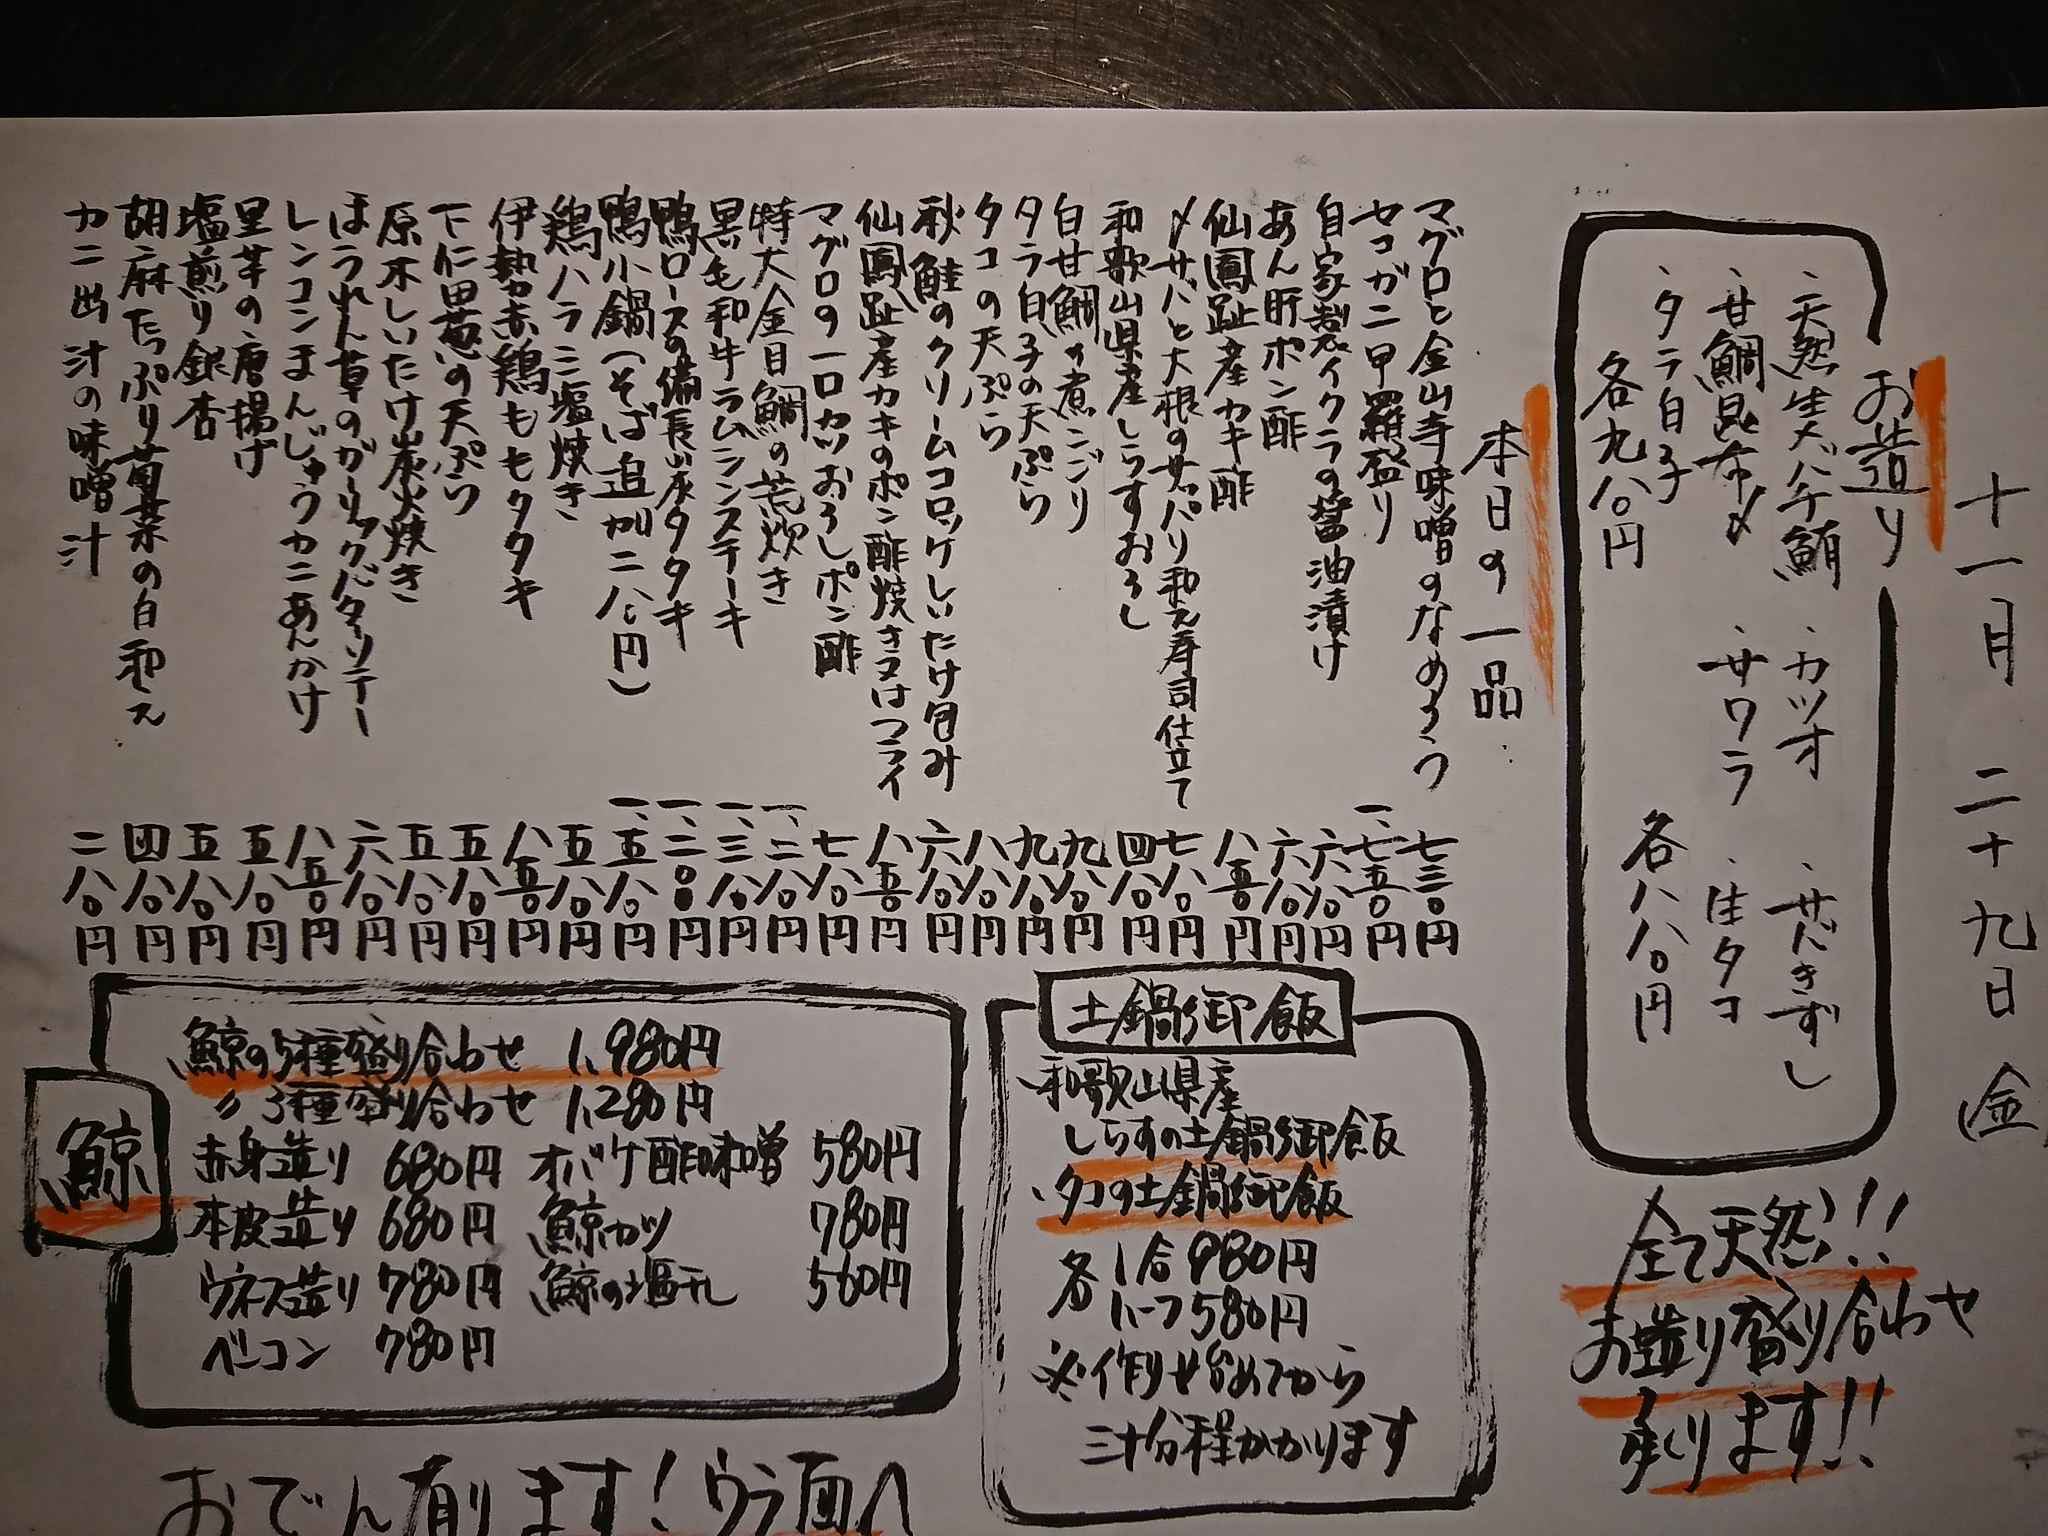 十一月二十九日金
お造り
・天然生メバチ鮪
・カツオ
・サバきずし
・甘鯛昆布〆
・サワラ
・生タコ
・タラ白子
各九八〇円
各八八〇円
全て天然!!
お造り盛り合わせ
承ります!!
本日の一品
マグロと金山寺味噌のなめろう 七三〇円
セコガニ甲羅盛り 一、七五〇円
自家製イクラの醤油漬け 六八〇円
あん肝ポン酢 六八〇円
仙鳳趾産カキ酢 八五〇円
〆サバと大根のサッパリ和え寿司仕立て 七八〇円
和歌山県産しらすおろし 四八〇円
白甘鯛の煮こごり 九八〇円
タラ白子の天ぷら 九八〇円
タコの天ぷら 八八〇円
秋鮭のクリームコロッケしいたけ包み 六八〇円
仙鳳趾産カキのポン酢焼き又はフライ 八五〇円
マグロの一口カツおろしポン酢 七八〇円
特大金目鯛の荒炊き 一、二八〇円
黒毛和牛ラムシンステーキ 一、三八〇円
鴨ロースの備長炭タタキ 一、二〇〇円
鴨小鍋(そば追加二八〇円) 一、五八〇円
鶏ハラミ塩焼き 五八〇円
伊勢赤鶏ももタタキ 八五〇円
下仁田葱の天ぷら 五八〇円
原木しいたけ炭火焼き 五八〇円
ほうれん草のガーリックバターソテー 六八〇円
レンコンまんじゅうカニあんかけ 八五〇円
里芋の唐揚げ 五八〇円
塩煎り銀杏 五八〇円
胡麻たっぷり菊菜の白和え 四八〇円
カニ出汁の味噌汁 二八〇円
土鍋御飯
和歌山県産
しらすの土鍋御飯
・タコの土鍋御飯
各 1合980円
ハーフ580円
※作りせ始めてから
三十分程かかります
鯨
鯨の5種盛り合わせ 1,980円
〃3種盛り合わせ 1,280円
赤身造り 680円 オバケ酢味噌 580円
本皮造り 680円 鯨カツ 780円
ウネス造り 780円 鯨の塩干し 560円
ベーコン 780円
おでん有ります!ウラ面へ